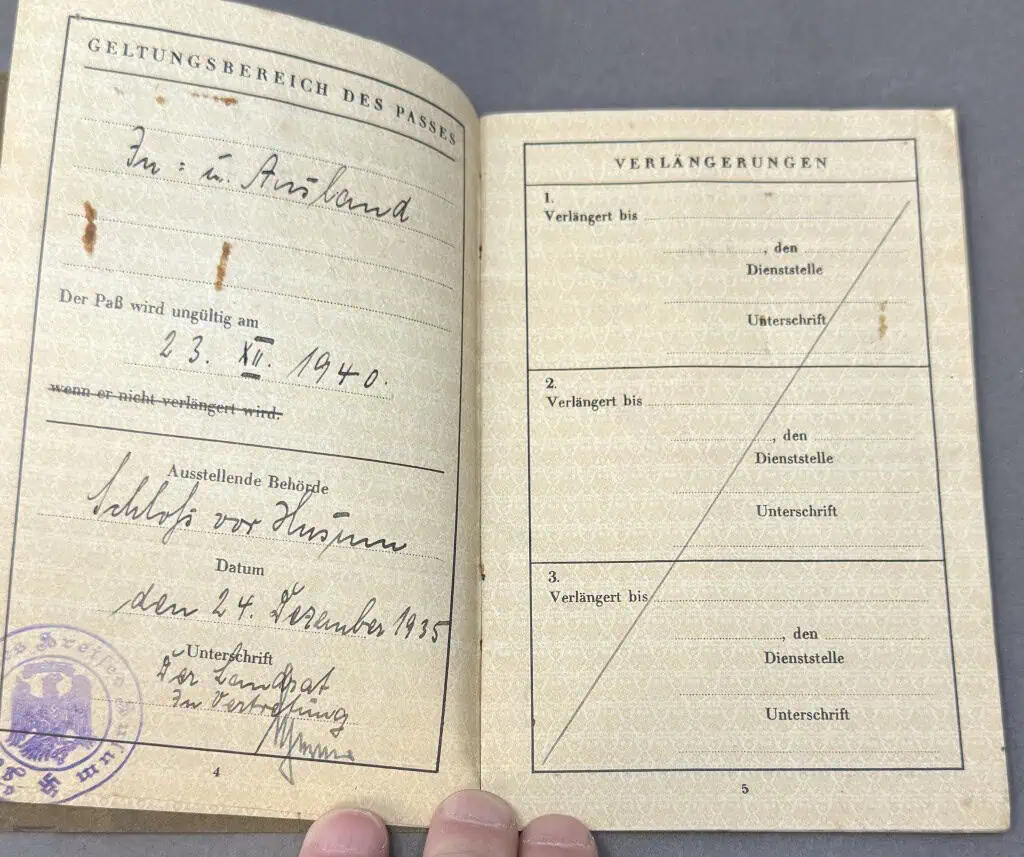 GELTUNGSBEREICH DES PASSES
In= u. Ausland
Der Paß wird ungültig am
23. XII. 1940.
wenn er nicht verlängert wird.
Ausstellende Behörde
Schloß vor Husum
Datum
den 24. Dezember 1935
Unterschrift
Der Landrat
In Vertretung
4
VERLÄNGERUNGEN
1.
Verlängert bis
, den
Dienststelle
Unterschrift
2.
Verlängert bis
, den
Dienststelle
Unterschrift
3.
Verlängert bis
, den
Dienststelle
Unterschrift
5